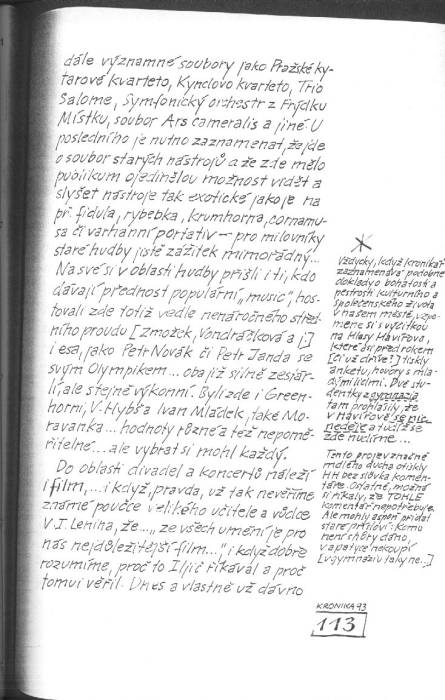 dále významné soubory jako Pražské ky-
tarové kvarteto, Kynclovo kvarteto, Trio
Salome, Symfonický orchestr z Frýdku
Místku, soubor Ars cameralis a jiné. U
posledního je nutno zaznamenat, že jde
o soubor starých nástrojů a že zde mělo
publikum ojedinělou možnost vidět a
slyšet nástroje tak exotické jako je na
př. fidula, rybebka, krumhorna, cornamu-
sa či varhanní portativ – pro milovníky
staré hudby jistě zážitek mimořádný...
Na své si v oblasti hudby přišli i ti, kdo
dávají přednost populární „music", hos-
tovali zde totiž vedle nenáročného střed-
ního proudu [Zmožek, Vondráčková a j.]
i esa, jako Petr Novák či Petr Janda se
svým Olympikem... oba již silně zestár-
lí, ale stejně výkonní. Byli zde i Green-
horni, V. Hybš a Ivan Mládek, také Mo-
ravanka... hodnoty různé a též nepomě-
řitelné... ale vybrat si mohl každý.
Do oblasti divadel a koncertů náleží
i film,... i když, pravda, už tak nevěříme
známé poučce velikého učitele a vůdce
V. I. Lenina, že... „ze všech umění je pro
nás nejdůležitější film...", i když dobře
rozumíme, proč to Iljič říkával a proč
tomu i věřil. Dnes a vlastně už dávno
Vždycky, když kronikář
zaznamenává podobné
doklady o bohatosti a
pestrosti kulturního a
společenského života
v našem městě, vzpo-
mene si s výčitkou
na Hlasy Havířova,
které asi před rokem
[či už dříve?] tiskly
anketu, hovory s mla-
dými lidmi. Dvě stu-
dentky z gymnazia
tam prohlásily, že
v Havířově se nic
neděje a tudíž se
zde nudíme...
Tento projev značně
mdlého ducha otiskly
HH bez slůvka komen-
táře. Ostatně, možná
si říkaly, že TOHLE
komentář nepotřebuje.
Ale mohly aspoň přidat
staré přísloví: Komu
není shůry dáno,
v apatyce nekoupí
[v gymnáziu taky ne..]
KRONIKA 93
113